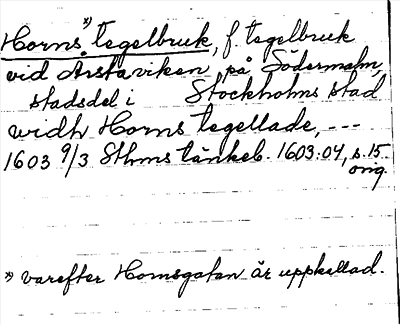 Horns *) tegelbruk, f. tegelbruk
vid Årstaviken, på Södermalm,
stadsdel i Stockholms stad
widh Horns tegellade, ---
1603 9/3 Sthms tänkeb. 1603-04, s. 15
orig.
*) varefter Hornsgatan är uppkallad.